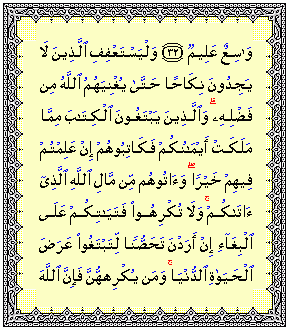 وَٰسِعٌ عَلِيمٌ ﴿٣٢﴾ وَلْيَسْتَعْفِفِ ٱلَّذِينَ لَا
يَجِدُونَ نِكَاحًا حَتَّىٰ يُغْنِيَهُمُ ٱللَّهُ مِن
فَضْلِهِۦ ۗ وَٱلَّذِينَ يَبْتَغُونَ ٱلْكِتَٰبَ مِمَّا
مَلَكَتْ أَيْمَٰنُكُمْ فَكَاتِبُوهُمْ إِنْ عَلِمْتُمْ
فِيهِمْ خَيْرًا ۖ وَءَاتُوهُم مِّن مَّالِ ٱللَّهِ ٱلَّذِىٓ
ءَاتَىٰكُمْ ۚ وَلَا تُكْرِهُوا۟ فَتَيَٰتِكُمْ عَلَى
ٱلْبِغَآءِ إِنْ أَرَدْنَ تَحَصُّنًا لِّتَبْتَغُوا۟ عَرَضَ
ٱلْحَيَوٰةِ ٱلدُّنْيَا ۚ وَمَن يُكْرِههُّنَّ فَإِنَّ ٱللَّهَ